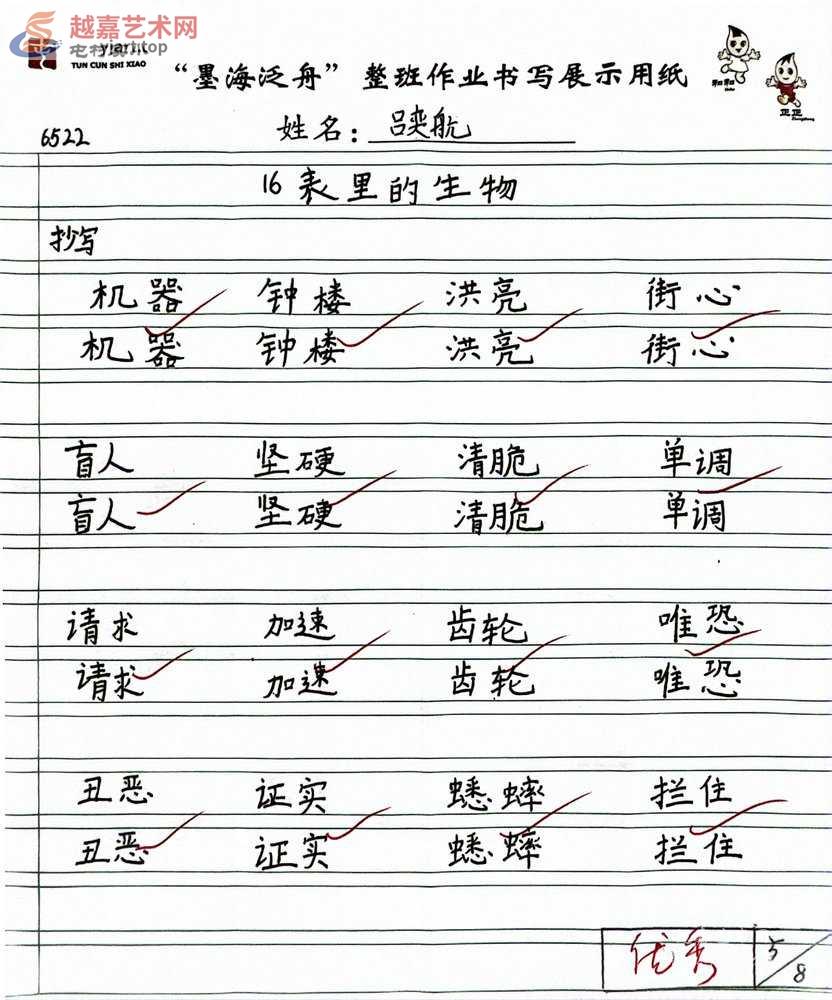 越嘉艺术网
yjart.top
TUN CUN SHI XIAO
“墨海泛舟”整班作业书写展示用纸
和和
正正
6522 姓名：吕奕航
16 表里的生物
抄写
机器 钟楼 洪亮 街心
机器 钟楼 洪亮 街心
盲人 坚硬 清脆 单调
盲人 坚硬 清脆 单调
请求 加速 齿轮 唯恐
请求 加速 齿轮 唯恐
丑恶 证实 蟋蟀 拦住
丑恶 证实 蟋蟀 拦住
优秀 5/8